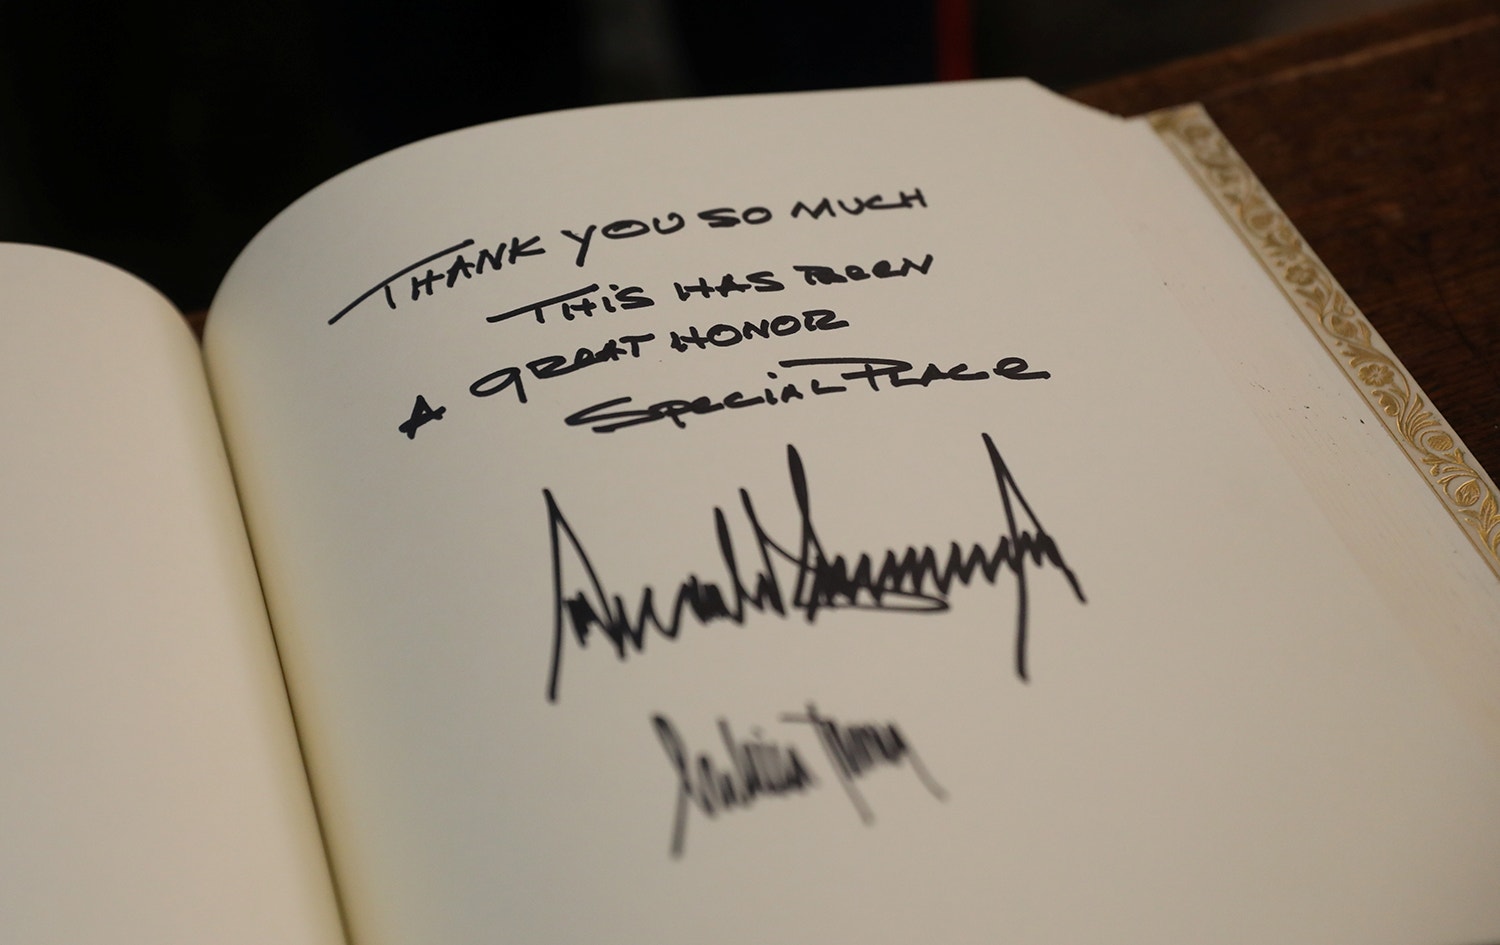 THANK YOU SO MUCH
THIS HAS BEEN
A GREAT HONOR
SPECIAL PLACE
Donald Trump
Melania Trump